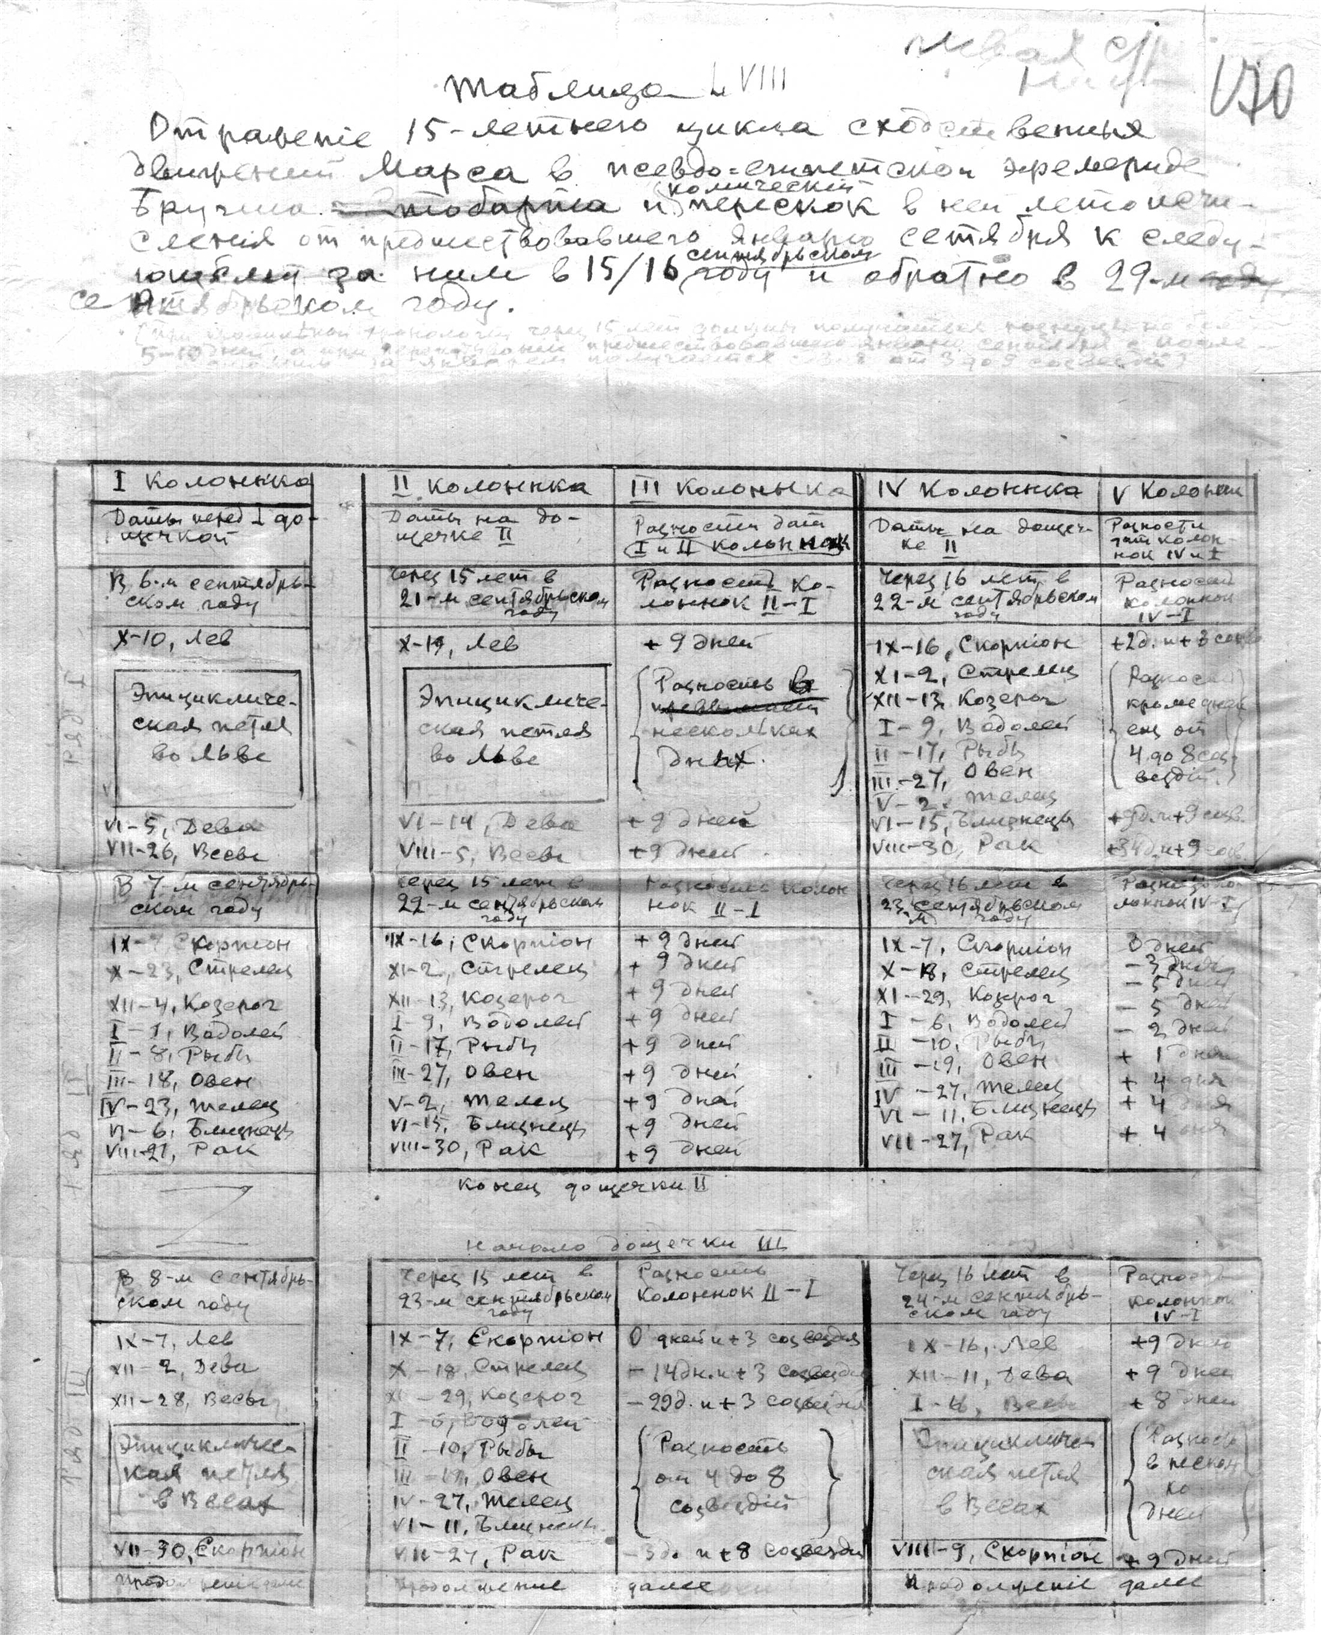 левая стр
170
Таблица LVIII
Отражение 15-летнего цикла сходственных
движений Марса в псевдо-египетской эфемериде
Бругша и комический перескок в ней летоисчи-
сления от предшествовавшего январю сетября к следу-
ющему за ним в 15/16 сентябрьском году и обратно в 29-м
сентябрьском году.
I Колоннка
II Колоннка
III Колоннка
IV Колоннка
V Колоннка
Даты перед I до-
щечкой
Даты на до-
щечке II
Разности дат
I и II колоннок
Даты на дощеч-
ке II
Разности
дат колон-
нок IV и I
В 6-м сентябрь-
ском году
Через 15 лет в
21-м сентябрьском
году
Разность ко-
лоннок II–I
Через 16 лет в
22-м сентябрьском
году
Разность
колоннок
IV–I
Ряд I
X–10, Лев
X–19, Лев
+9 дней
IX–16, Скорпіон
Эпицикличе-
ская петля
во Льве
Эпицикличе-
ская петля
во Льве
Разность в
нескольких
днях.
XI–2, Стрелец
XII–13, Козерог
I–9, Водолей
II–17, Рыбы
III–27, Овен
V–2, Телец
Разность
кроме дней
ещ от
4 до 8 соз-
вездій
VI–5, Дева
VI–14, Дева
+9 дней
VI–15, Близнецы
VII–26, Весы
VIII–5, Весы
+9 дней
VIII–30, Рак
В 7-м сентябрь-
ском году
Через 15 лет в
22-м сентябрьском
году
Разность колон
нок II–I
Через 16 лет в
23-м сентябрьском
году
Ряд II
IX–7, Скорпіон
IX–16, Скорпіон
+9 дней
IX–7, Скорпіон
0 дней
X–23, Стрелец
XI–2, Стрелец
+9 дней
X–18, Стрелец
XII–4, Козерог
XII–13, Козерог
+9 дней
XI–29, Козерог
– 5 дней
I–1, Водолей
I–9, Водолей
+9 дней
I–6, Водолей
– 5 дней
II–8, Рыбы
II–17, Рыбы
+9 дней
II–10, Рыбы
– 2 дней
III–18, Овен
III–27, Овен
+9 дней
III–19, Овен
+ 1 дня
IV–23, Телец
V–2, Телец
+9 дней
IV–27, Телец
+ 4 дня
VI–6, Близнецы
VI–15, Близнецы
+9 дней
VI–11, Близнецы
+ 4 дня
VIII–21, Рак
VIII–30, Рак
+9 дней
VII–27, Рак
+ 4 дня
Конец дощечки II
Начало дощечки III
В 8-м сентябрь-
ском году
Через 15 лет в
23-м сентябрьском
году
Разность
колоннок II–I
Через 16 лет в
24-м сентябрь-
ском году
Разность
колоннок
IV–I
Ряд III
IX–7, Лев
IX–7, Скорпіон
0 дней и +3 созвездія
IX–16, Лев
+9 дней
XII–2, Дева
X–18, Стрелец
–14 дн. и +3 созвездія
XII–11, Дева
+9 дней
XII–28, Весы
XI–29, Козерог
–29 д. и +3 созвездія
I–6, Весы
+8 дней
Эпицикличес-
кая петля
в Весах
I–6, Водолей
II–10, Рыбы
III–19, Овен
IV–27, Телец
VI–11, Близнецы
Разность
от 4 до 8
созвездій
Эпицикличе-
ская петля
в Весах
Разность
в несколь
ко
дней
VII–30, Скорпіон
VII–27, Рак
–3 д. и +8 созвездій
VIII–9, Скорпіон
+9 дней
Продолжение далее
Продолжение
далее
Продолжение
далее